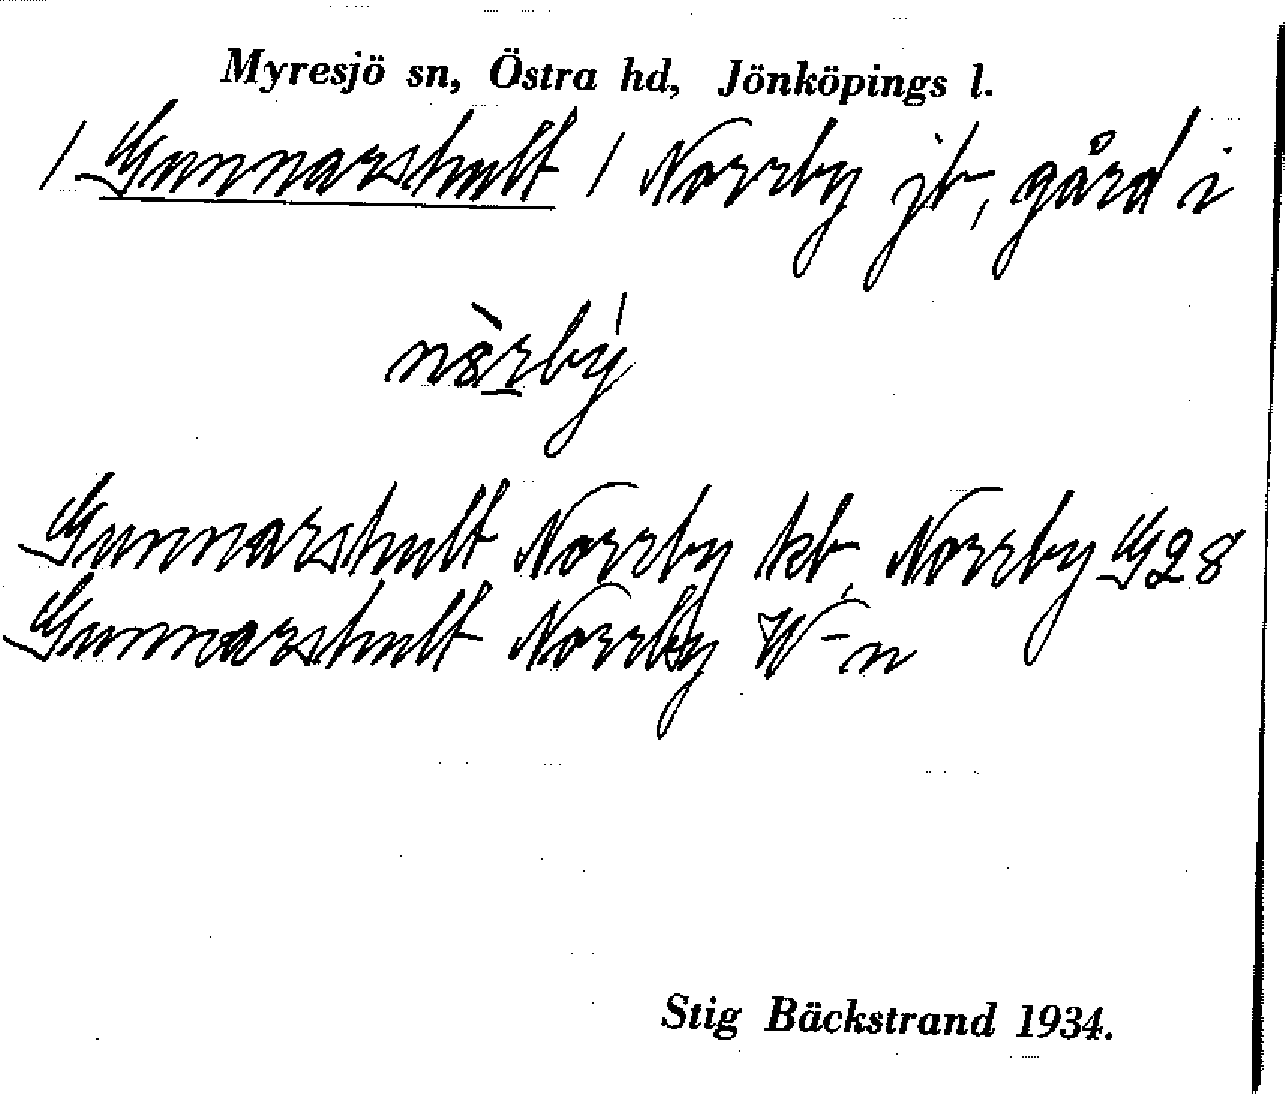 Myresjö sn, Östra hd, Jönköpings l.
/ Gunnarshult / Norrby jb, gård i
Gunnarshult Norrby kb, Norrby G28
Gunnarshult Norrby W-n
Stig Bäckstrand 1934.